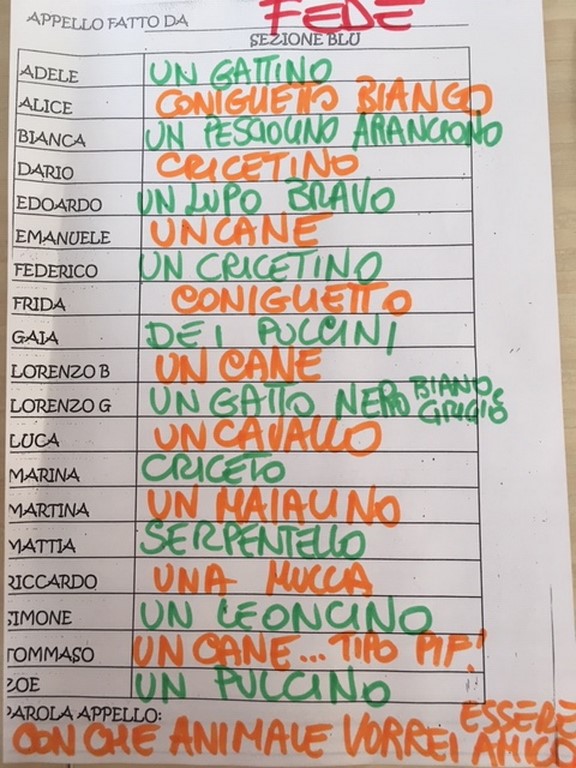 APPELLO FATTO DA FEDE
SEZIONE BLU
ADELE UN GATTINO
ALICE CONIGLIETTO BIANCO
BIANCA UN PESCIOLINO ARANCIONO
DARIO CRICETINO
EDOARDO UN LUPO BRAVO
EMANUELE UN CANE
FEDERICO UN CRICETINO
FRIDA CONIGLIETTO
GAIA DEI PULCINI
LORENZO B UN CANE
LORENZO G UN GATTO NERO BIANO E GRIGIO
LUCA UN CAVALLO
MARINA CRICETO
MARTINA UN MAIALINO
MATTIA SERPENTELLO
RICCARDO UNA MUCCA
SIMONE UN LEONCINO
TOMMASO UN CANE... TIPO PIF!
ZOE UN PULCINO
PAROLA APPELLO:
CON CHE ANIMALE VORREI ESSERE AMICO